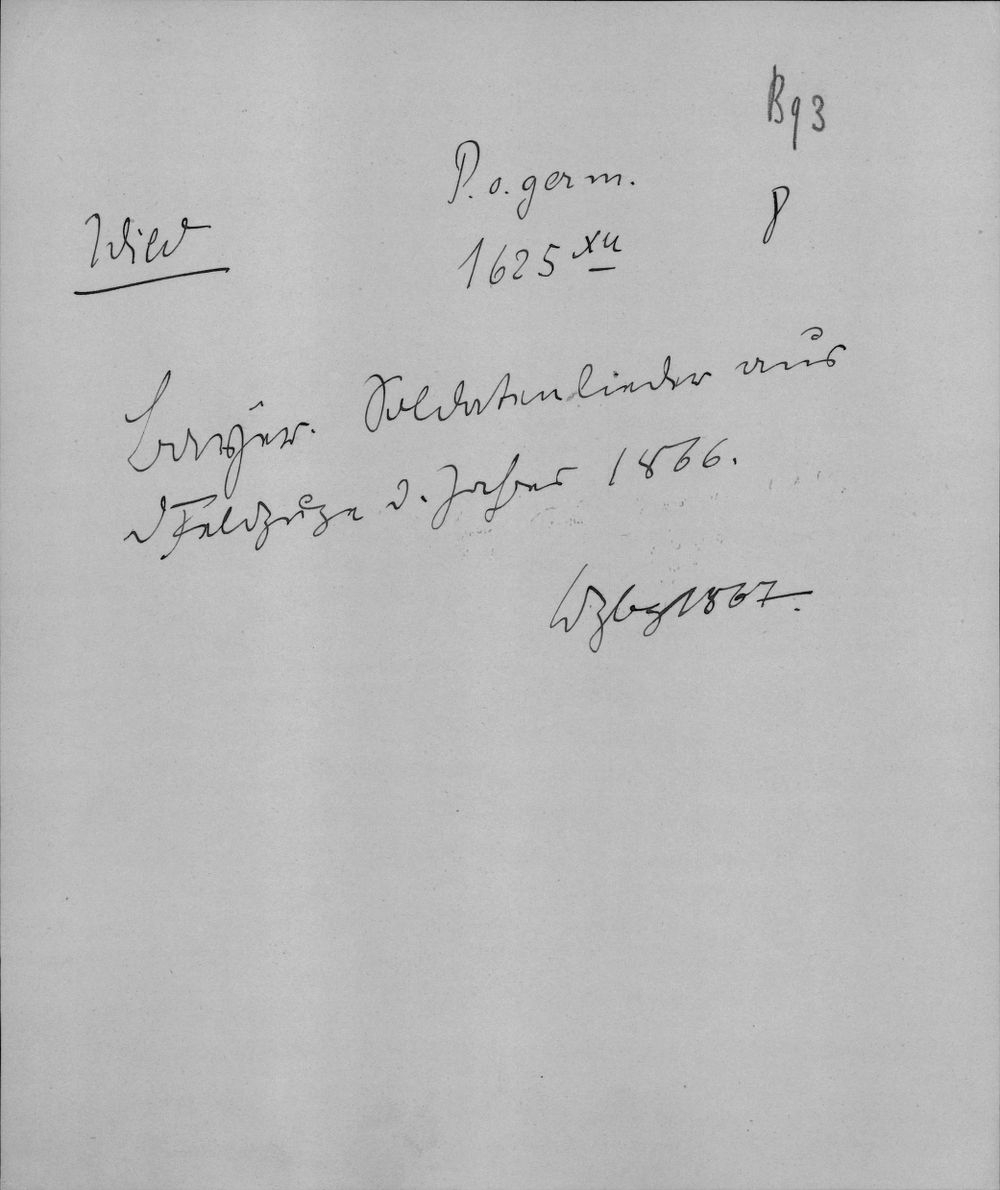 Bq3
P. o. germ.
8
Wild
1625 xu
Bayer. Soldatenlieder aus
d Feldzuge d. Jahres 1866.
Wzbg 1867.